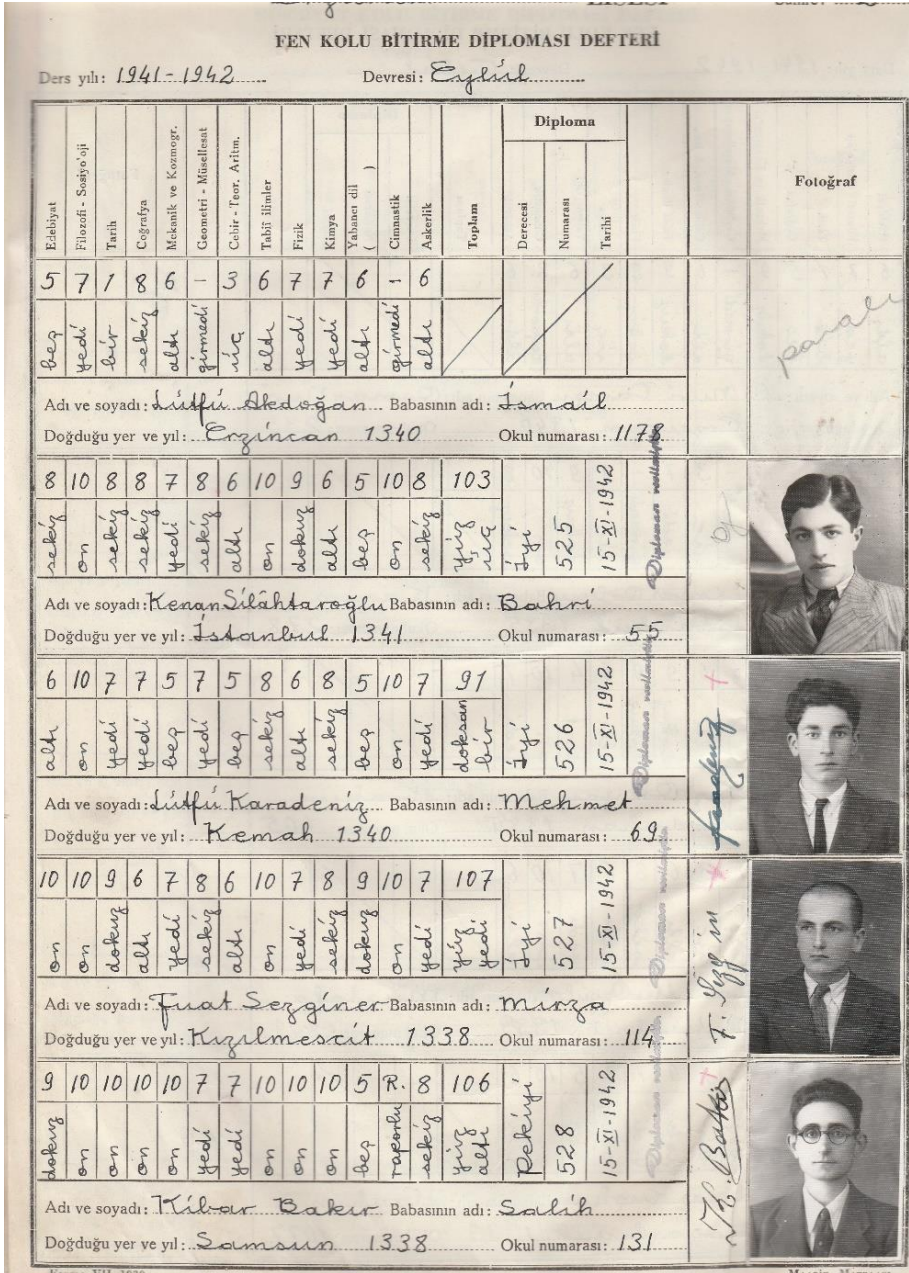 LİSESİ
FEN KOLU BİTİRME DİPLOMASI DEFTERİ
Ders yılı: 1941-1942 Devresi: Eylül
Edebiyat
Filozofi - Sosiyo'oji
Tarih
Coğrafya
Mekanik ve Kozmogr.
Geometri - Müsellesat
Cebir - Teor. Aritm.
Tabiî ilimler
Fizik
Kimya
Yabancı dil ( )
Cimnastik
Askerlik
Toplam
Diploma
Derecesi
Numarası
Tarihi
Fotoğraf
5 7 1 8 6 - 3 6 7 7 6 - 6
beş yedi bir sekiz altı girmedi üç altı yedi yedi altı girmedi altı
paralı
Adı ve soyadı: Lûtfü Akdoğan Babasının adı: İsmail
Doğduğu yer ve yıl: Erzincan 1340 Okul numarası: 1178
8 10 8 8 7 8 6 10 9 6 5 10 8 103
sekiz on sekiz sekiz yedi sekiz altı on dokuz altı beş on sekiz yüz üç İyi 525 15-XI-1942
Adı ve soyadı: Kenan Silâhtaroğlu Babasının adı: Bahri
Doğduğu yer ve yıl: İstanbul 1341 Okul numarası: 55
6 10 7 7 5 7 5 8 6 8 5 10 7 91
altı on yedi yedi beş yedi beş sekiz altı sekiz beş on yedi doksan bir İyi 526 15-XI-1942
Adı ve soyadı: Lûtfü Karadeniz Babasının adı: Mehmet
Doğduğu yer ve yıl: Kemah 1340 Okul numarası: 69
10 10 9 6 7 8 6 10 7 8 9 10 7 107
on on dokuz altı yedi sekiz altı on yedi sekiz dokuz on yedi yüz yedi İyi 527 15-XI-1942
Adı ve soyadı: Fuat Sezginer Babasının adı: Mirza
Doğduğu yer ve yıl: Kızılmescit 1338 Okul numarası: 114
9 10 10 10 10 7 7 10 10 10 5 R. 8 106
dokuz on on on on yedi yedi on on on beş raporlu sekiz yüz altı Pekiyi 528 15-XI-1942
K. Bakır
Adı ve soyadı: Kibar Bakır Babasının adı: Salih
Doğduğu yer ve yıl: Samsun 1338 Okul numarası: 131